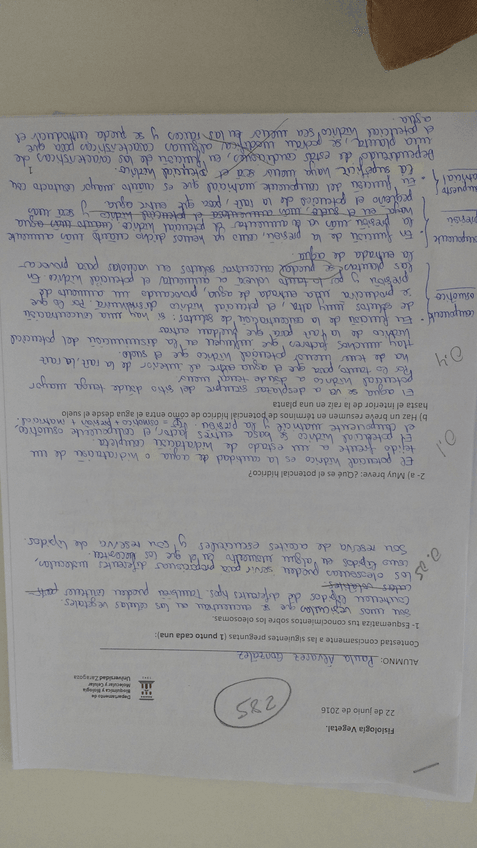 Fisiología Vegetal.
22 de junio de 2016
285
Departamento de
Bioquímica y Biología
Molecular y Celular
Universidad Zaragoza
ALUMNO: Paula Álvarez González
Contestad concisamente a las siguientes preguntas (1 punto cada una):
1- Esquematiza tus conocimientos sobre los oleosomas.
Son unas vesículas que se acumulan en las células vegetales.
Contienen lípidos de diferentes tipos. También pueden contener
Los oleosomas pueden servir para proporcionar diferentes moléculas,
como lípidos en algún momento en el que los necesitan.
Son reserva de aceites esenciales y son reserva de lípidos.
0.25
2- a) Muy breve: ¿Qué es el potencial hídrico?
El potencial hídrico es la cantidad de agua o hidratación de un
tejido frente a un estado de hidratación completa.
El potencial hídrico se basa en tres factor, el componente osmótico,
el componente matricial y la presión. = osmótico + presión + matricial.
0.1
b) Haz un breve resumen en términos de potencial hídrico de como entra el agua desde el suelo
hasta el interior de la raíz en una planta
El agua se va a desplazar siempre del sitio donde tenga mayor
potencial hídrico a donde tenga menor.
Por lo tanto, para que el agua entre al interior de la raíz, la raíz
ha de tener menor potencial hídrico que el suelo.
Hay muchos factores que influyen en la disminución del potencial
hídrico de la raíz para que pueda entrar
0.4
componente
osmótico
- En función de la concentración de solutos: si hay una concentración
de solutos muy alta, el potencial hídrico disminuirá. Por lo que
se producirá una entrada de agua, provocando un aumento de
presión y por lo tanto volver a aumentar el potencial hídrico. En
las plantas se puede acumular solutos en vacuolas para provocar
la entrada de agua.
componente
presión
- En función de la presión, como ya hemos dicho cuanto más aumente
la presión más va a aumentar el potencial hídrico
pequeño el potencial de la raíz, para que entre agua y
matricial
- En función del componente matricial que es cuanto mayor contacto con
la superficie haya menor será el potencial hídrico.
Dependiendo de estas condiciones, en función de las características de
una planta, se podrán modificar algunas características para que
el potencial hídrico sea menor en las raíces y se pueda introducir el
agua.